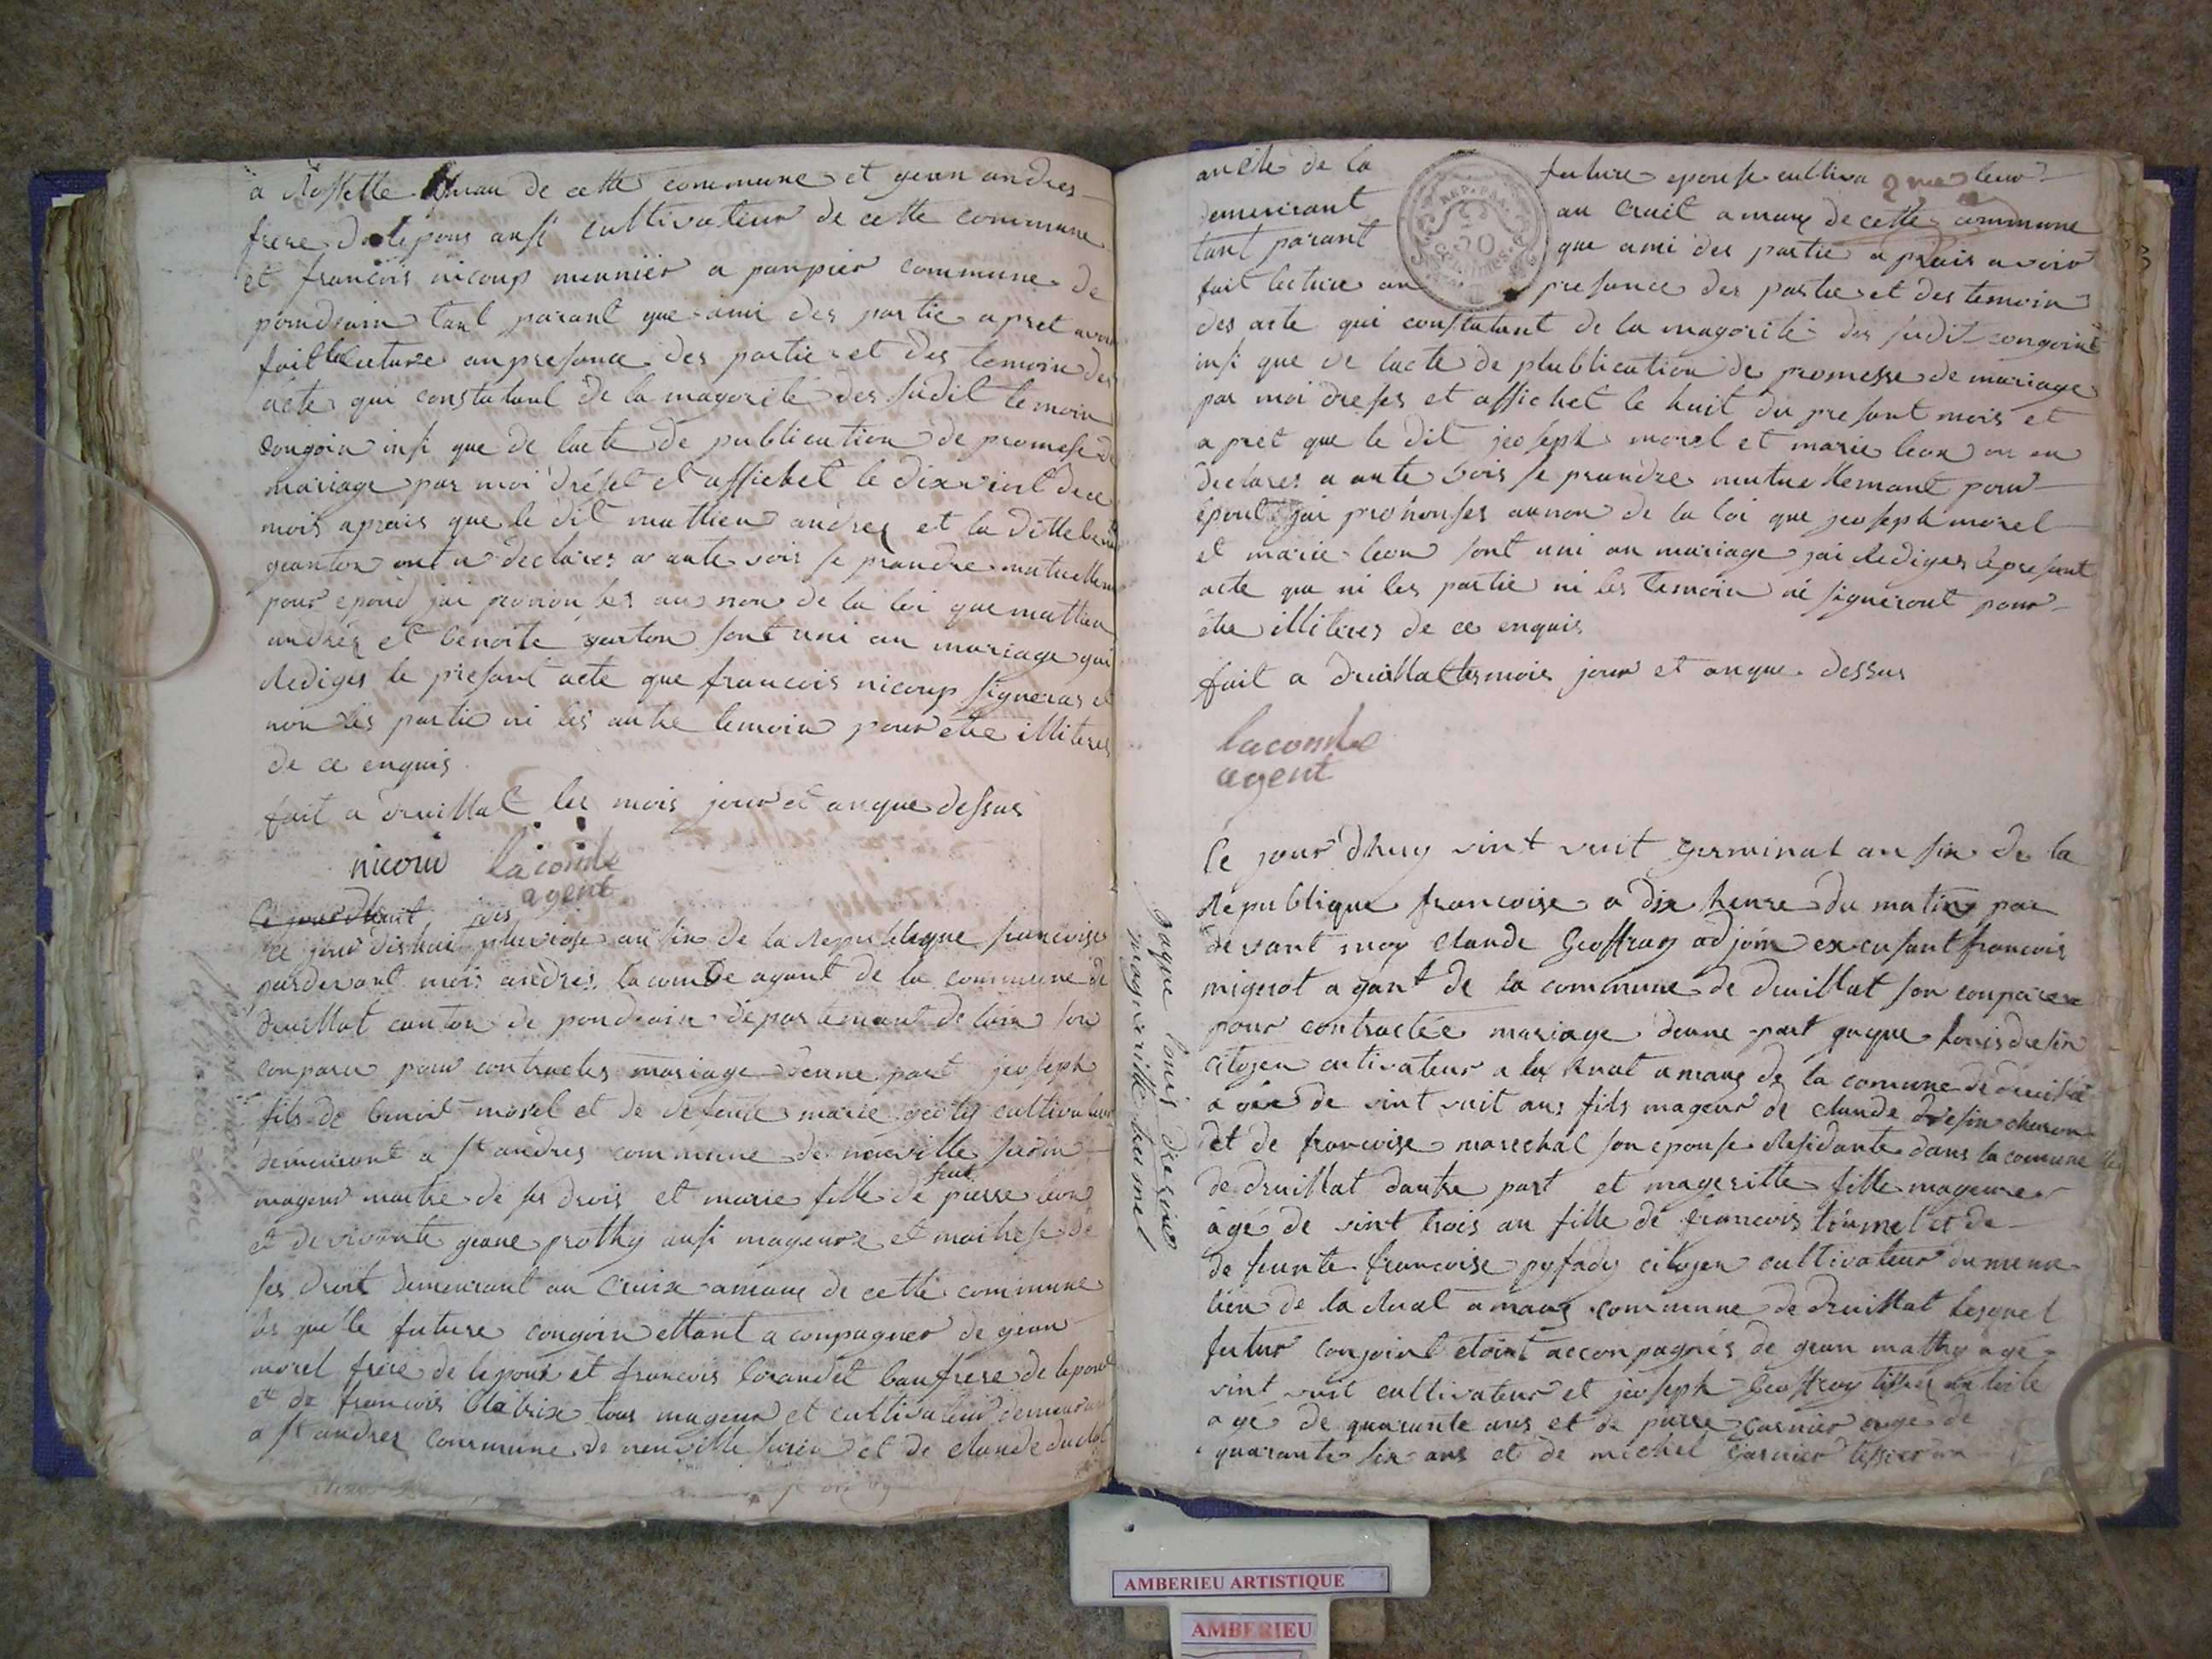 a Rossette amau de cette commune et gean andres
frere de lepous ausi cultivateur de cette commune
et francois nicoup meunier a pampier commune de
pondain tant parant que ami des partie apret avoir
fait lecture an presance des partie et des temoin des
acte qui constatant de la magorité des sudit temoin
congoin insi que de lacte de publication de promese de
mariage par moi dréset et affichet le dixvint de ce
mois aprais que le dit mathieu andrez et la ditte benoite
geanton ont declares a aute vois se prandre mutuellem
pour epoud jai prononses au non de la loi que mathieu
andrez et benoite ganton sont uni an mariage jai
Rediges le presant acte que francois nicoup signeras et
non les partie ni les autre temoin pour etre illiteres
de ce enquis
fait a druillat les mois jour et anque dessus
nicoud lacombe
agent
Ce jourdhuit
ce jour dishuit pluviose an six de la Republique francoise
pardevant moi andres lacombe agant de la commune de
druillat canton de pondain departemant de lain son
conparu pour contractes mariage deune part jeoseph
fils de benoit morel et de defunte marie cultivateur
demeurant a st andres commune de neuville surin
mageur maitre de ses drois et marie fille de feut pierre leon
et de vivante geane prothy ausi mageure et maitrese de
ses droit demeurant au Cruix amaux de cette commune
les quelle future congoin ettant a conpagner de gean
morel frere de lepous et francois beaufrere de lepous
et de francois blabrix tous mageur et cultivateur demeurant
a st andres commune de neuville surin et de claude duclot
jeoseph morel
et marie leon
ancle de la future epouse cultivateur
demeurant au Cruit amaux de cette commune
tant parant que ami des partie aprais avoir
fait lecture an presance des partie et des temoin
des acte qui constatant de la magorité des sudit congoint
insi que de lacte de plublication de promesse de mariage
par moi dreses et affichet le huit du presant mois et
apret que le dit jeoseph morel et marie leon on en
declares a aute vois se prandre mutuellemant pour
epout jai prononses aunon de la loi que jeoseph morel
et marie leon sont uni an mariage jai Rediges le presant
acte que ni les partie ni les temoin né signeront pour
être illiteres de ce enquis
fait a druillat les mois jour et anque dessus
lacombe
agent
jaque louis dresin
magueritte tournel
Ce jour dhuy vint vuit germinal an six de la
Republique francoise a dix heure du matin par
devant moy claude Geoffray adjoin excusant francois
migerot agant de la commune de druillat son conparu
pour contractée mariage deune part jaque louis dresin
citoyen cultivateur a la Ruat amaug de la comune de druillat
agé de vint vuit ans fils mageur de claude dresin charon
et de francoise marechal son epouse Residante dans la comune
de druillat dautre part et mageritte fille mageure
agé de vint trois an fille de francois tournel et de
de feunte francoise pysady citoyen cultivateur du meme
lieu de la Ruat amaug commune de druillat lesquel
futur conjoint etoint acconpagnés de gean mathy agé
vint vuit cultivateur et jeoseph Geoffroy tissier en toile
agé de quarante ans et de pierre garnier angé de
quarante six ans et de michel Garnier tissier en
AMBERIEU ARTISTIQUE
AMBERIEU